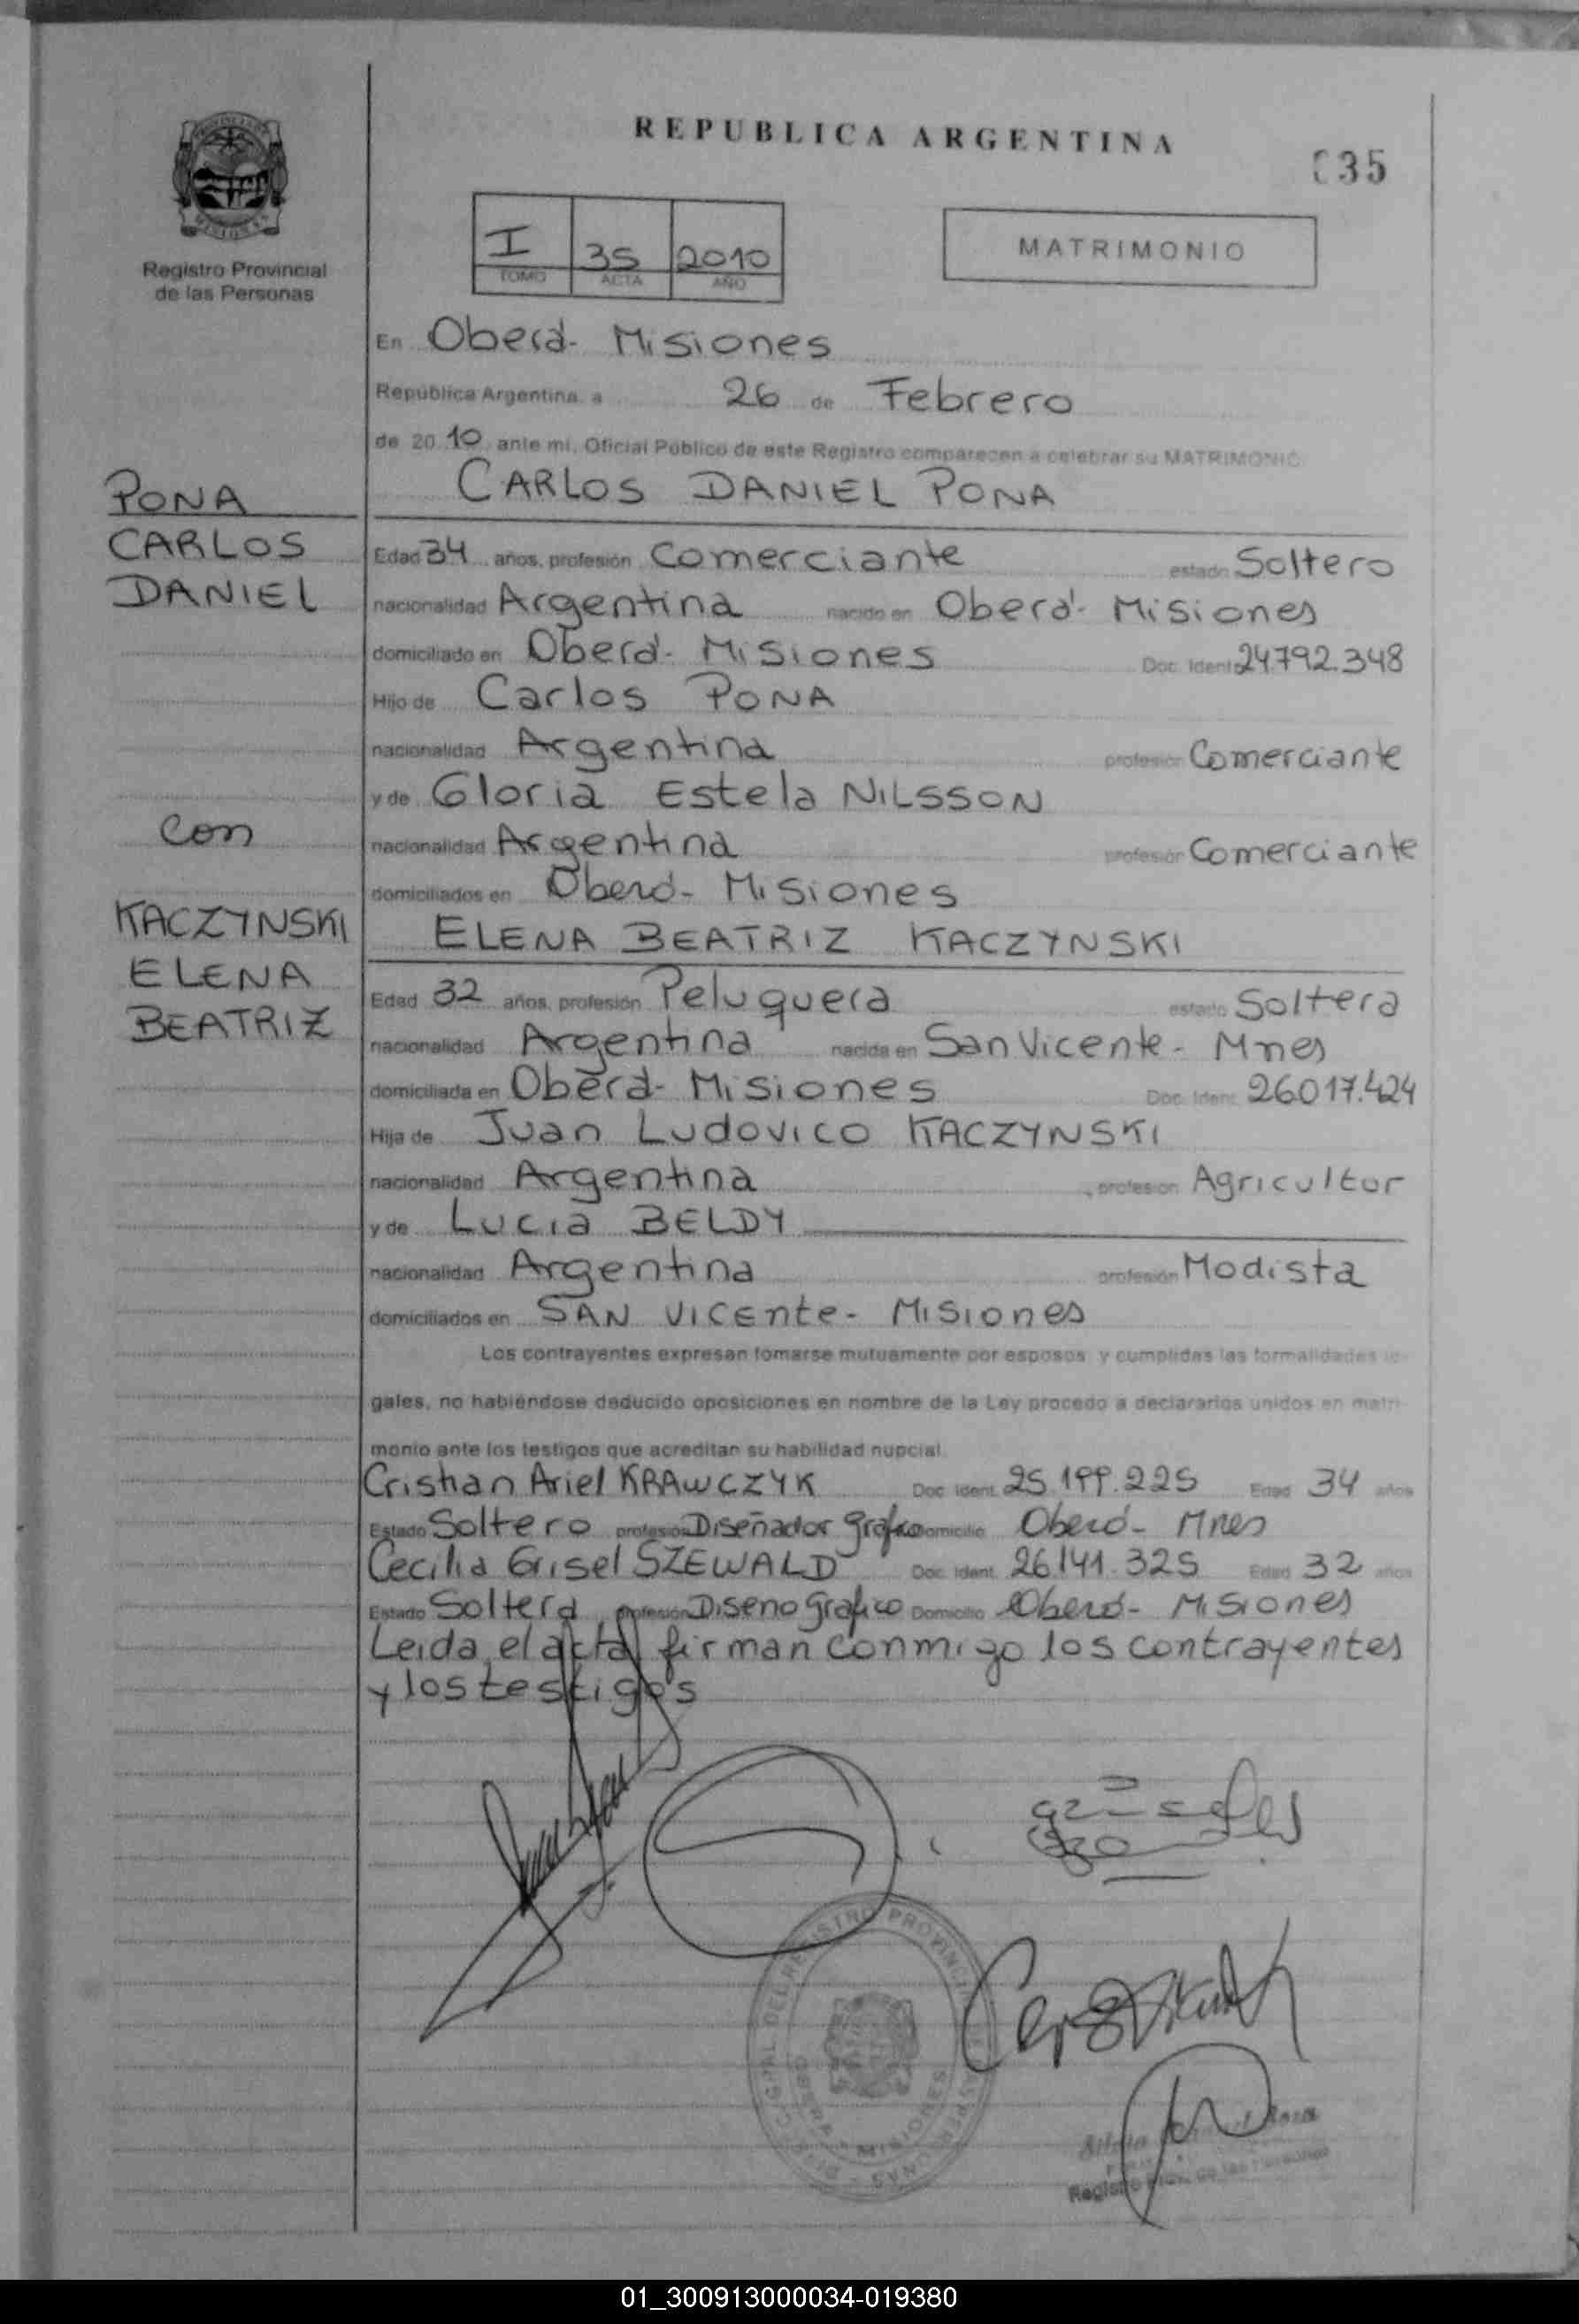 REPUBLICA ARGENTINA
035
Registro Provincial
de las Personas
I 35 2010
TOMO ACTA AÑO
MATRIMONIO
En Oberá - Misiones
República Argentina, a 26 de Febrero
de 2010, ante mi, Oficial Público de este Registro comparecen a celebrar su MATRIMONIO
PONA
CARLOS
DANIEL
con
KACZYNSKI
ELENA
BEATRIZ
CARLOS DANIEL PONA
Edad 34 años, profesión Comerciante estado Soltero
nacionalidad Argentina nacido en Oberá - Misiones
domiciliado en Oberá - Misiones Doc. Ident. 24.792.348
Hijo de Carlos PONA
nacionalidad Argentina profesión Comerciante
y de Gloria Estela NILSSON
nacionalidad Argentina profesión Comerciante
domiciliados en Oberá - Misiones
ELENA BEATRIZ KACZYNSKI
Edad 32 años, profesión Peluquera estado Soltera
nacionalidad Argentina nacida en San Vicente - Mnes
domiciliada en Oberá - Misiones Doc. Ident. 26.017.424
Hija de Juan Ludovico KACZYNSKI
nacionalidad Argentina, profesion Agricultor
y de Lucia BELDY
nacionalidad Argentina profesión Modista
domiciliados en SAN VICENte - MISIones
Los contrayentes expresan tomarse mutuamente por esposos y cumplidas las formalidades le-
gales, no habiéndose deducido oposiciones en nombre de la Ley procedo a declararlos unidos en matri-
monio ante los testigos que acreditan su habilidad nupcial.
Cristian Ariel KRAWCZYK Doc. Ident. 25.199.225 Edad 34 años
Estado Soltero profesión Diseñador grafico domicilio Oberá - Mnes
Cecilia Grisel SZEWALD Doc. Ident. 26.141.325 Edad 32 años
Estado Soltera profesión Diseno grafico Domicilio Oberá - Misiones
Leida el acta firman conmigo los contrayentes
y los testigos
REGISTRO PROVINCIAL DE LAS PERSONAS
OBERA - MISIONES
Registro Prov. de las Personas
01_300913000034-019380